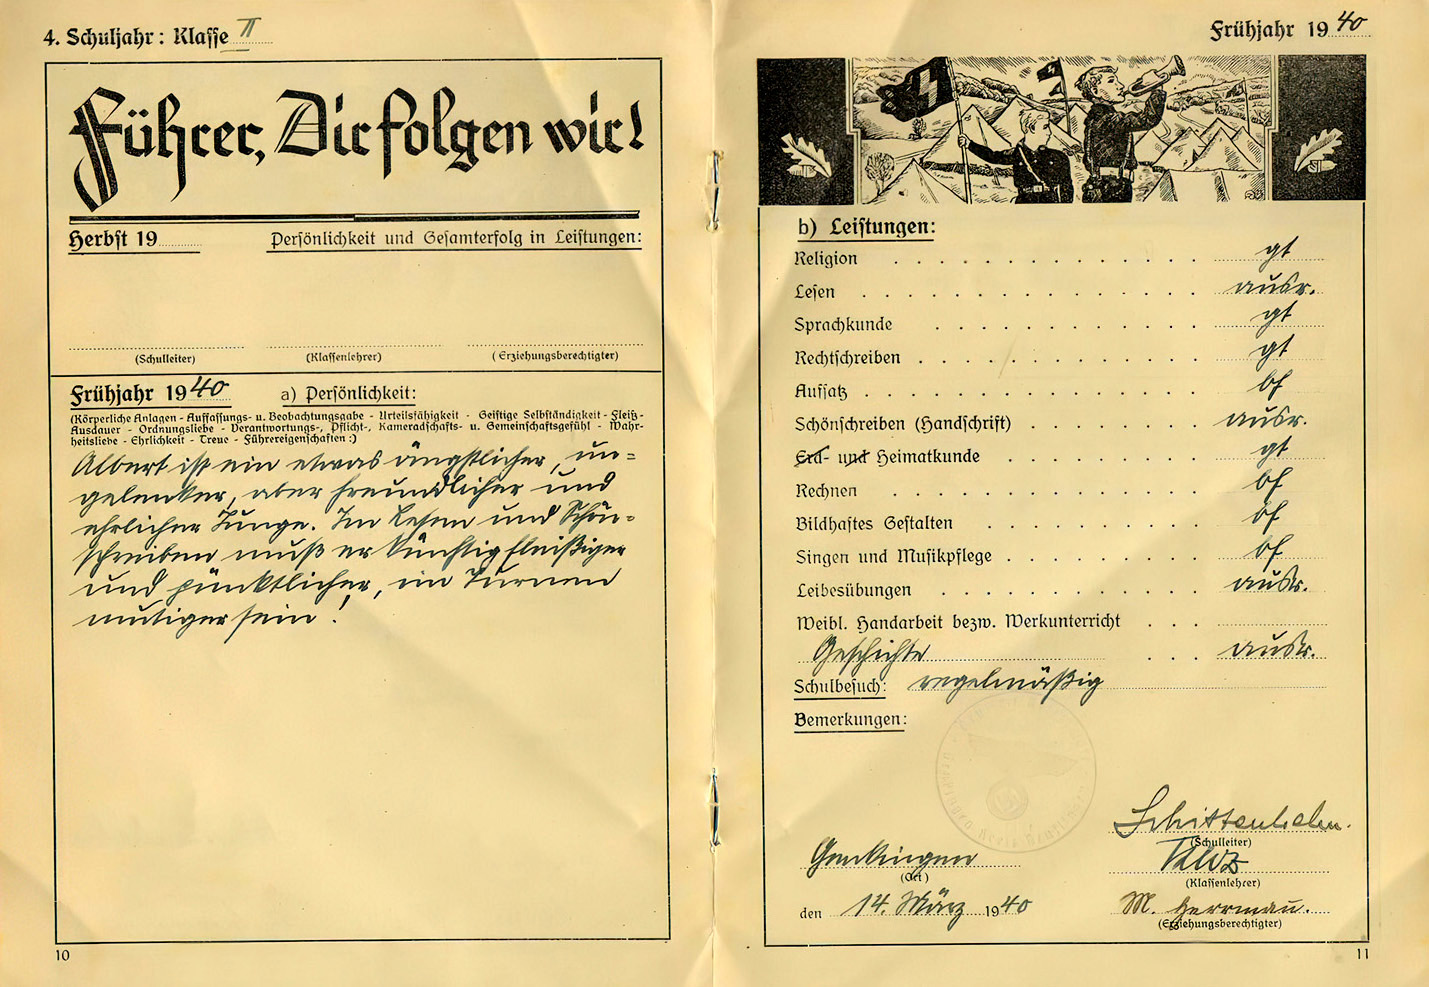 4. Schuljahr: Klasse II
Führer, Dir folgen wir!
Herbst 19
Persönlichkeit und Gesamterfolg in Leistungen:
(Schulleiter) (Klassenlehrer) (Erziehungsberechtigter)
Frühjahr 1940 a) Persönlichkeit:
(Körperliche Anlagen - Auffassungs- u. Beobachtungsgabe - Urteilsfähigkeit - Geistige Selbständigkeit - Fleiß-
Ausdauer - Ordnungsliebe - Verantwortungs-, Pflicht-, Kameradschafts- u. Gemeinschaftsgefühl - Wahr-
heitsliebe - Ehrlichkeit - Treue - Führereigenschaften:)
Albert ist ein etwas ängstlicher, un=
gelenker, aber freundlicher und
ehrlicher Junge. Im Lesen und Schön=
schreiben muß er künftig fleißiger
und pünktlicher, im Turnen
mutiger sein!
10
Frühjahr 1940
b) Leistungen:
Religion gt
Lesen ausr.
Sprachkunde gt
Rechtschreiben gt
Aufsatz bf
Schönschreiben (Handschrift) ausr.
Erd- und Heimatkunde gt
Rechnen bf
Bildhaftes Gestalten bf
Singen und Musikpflege bf
Leibesübungen ausr.
Weibl. Handarbeit bezw. Werkunterricht
Geschichte ausr.
Schulbesuch: regelmäßig
Bemerkungen:
Schittenhelm.
(Schulleiter)
Genkingen
(Ort)
(Klassenlehrer)
den 14. März 1940
M. Herrmann.
(Erziehungsberechtigter)
11